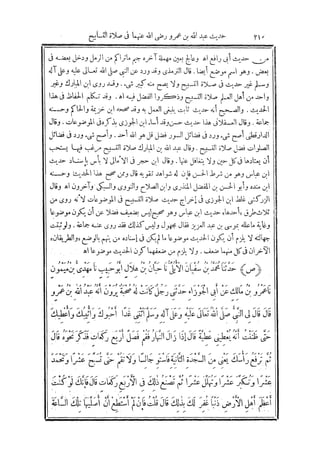 ٢١٠ حديث عبد الله بن عمرو رضى الله عنهما فى صلاة التسابيح
من حديث أبى رافع اه وعالج بعين مهملة آخره جيم ماتراكم من الرمل ودخل بعضه فى
بعض. وهو اسم موضع أيضا. قال الترمذى وقد ورد عن النبى صلى الله تعالى عليه وعلى آله
وسلم غير حديث فى صلاة التسبيح ولا يصح منه كبير شىء. وقد روى ابن المبارك وغير
واحد من أهل العلم صلاة التسبيح وذكروا الفضل فيه اه. وقد تكلم الحفاظ فى هذا
الحديث. والصحيح أنه حديث ثابت ينبغى العمل به وقد صححه ابن خزيمة والحاكم وحسنه
جماعة. وقال العسقلانى هذا حديث حسن وقد أساء ابن الجوزى بذكره فى الموضوعات. وقال
الدارقطنى أصح شىء ورد فى فضائل السور فضل قل هو الله أحد. وأصح شىء ورد فى فضائل
الصلوات فضل صلاة التسبيح. وقال عبد الله بن المبارك صلاة التسبيح مرغب فيها يستحب
أن يعتادها فى كل حين ولا يتغافل عنها. وقال ابن حجر فى الأمالى لا بأس بإسناد حديث
ابن عباس وهو من شرط الحسن فإن له شواهد تقويه قال وممن صحح هذا الحديث وحسنه
ابن منده وأبو الحسن بن المفضل المنذرى وابن الصلاح والنووى والسبكى وآخرون اه وقال
الزركشى غلط ابن الجوزى فى إخراج حديث صلاة التسبيح فى الموضوعات لأنه روى من
ثلاث طرق، أحدها، حديث ابن عباس وهو صحيح ليس بضعيف فضلا عن أن يكون موضوعا
وغاية ماعلله بموسى بن عبد العزيز فقال مجهول وليس كذلك فقد روى عنه جماعة. ولو ثبتت
جهالته لا يلزم أن يكون الحديث موضوعا ما لم يكن فى إسناده من يتهم بالوضع «والطريقان»
الآخران فى كل منهما ضعف. ولا يلزم من ضعفهما كون الحديث موضوعا اه
(ص) حَدَّثَنَا مُحَمَّدُ بْنُ سُفْيَانَ الأُبُلِّىُّ نَا حَبَّانُ بْنُ هِلَالٍ أَبُو حَبِيبٍ نَا مَهْدِىُّ بْنُ مَيْمُونٍ
نَا عَمْرُو بْنُ مَالِكٍ عَنْ أَبِى الْجَوْزَاءِ حَدَّثَنِى رَجُلٌ كَانَتْ لَهُ صُحْبَةٌ يُرَوْنَ أَنَّهُ عَبْدُ اللهِ بْنُ عَمْرٍو
قَالَ قَالَ لِى النَّبِىُّ صَلَّى اللهُ تَعَالَى عَلَيْهِ وَعَلَى آلِهِ وَسَلَّمَ ائْتِنِى غَدًا أَحْبُوكَ وَأُثِيبُكَ وَأُعْطِيكَ
حَتَّى ظَنَنْتُ أَنَّهُ يُعْطِينِى عَطِيَّةً قَالَ إِذَا زَالَ النَّهَارُ فَقُمْ فَصَلِّ أَرْبَعَ رَكَعَاتٍ فَذَكَرَ نَحْوَهُ قَالَ
ثُمَّ تَرْفَعُ رَأْسَكَ يَعْنِى مِنَ السَّجْدَةِ الثَّانِيَةِ فَاسْتَوِ جَالِسًا وَلَا تَقُمْ حَتَّى تُسَبِّحَ عَشْرًا وَتَحْمَدَ
عَشْرًا وَتُكَبِّرَ عَشْرًا وَتُهَلِّلَ عَشْرًا ثُمَّ تَصْنَعُ ذَلِكَ فِى الأَرْبَعِ رَكَعَاتٍ قَالَ فَإِنَّكَ لَوْ كُنْتَ
أَعْظَمَ أَهْلِ الأَرْضِ ذَنْبًا غُفِرَ لَكَ بِذَلِكَ قَالَ قُلْتُ فَإِنْ لَمْ أَسْتَطِعْ أَنْ أُصَلِّيَهَا تِلْكَ السَّاعَةَ